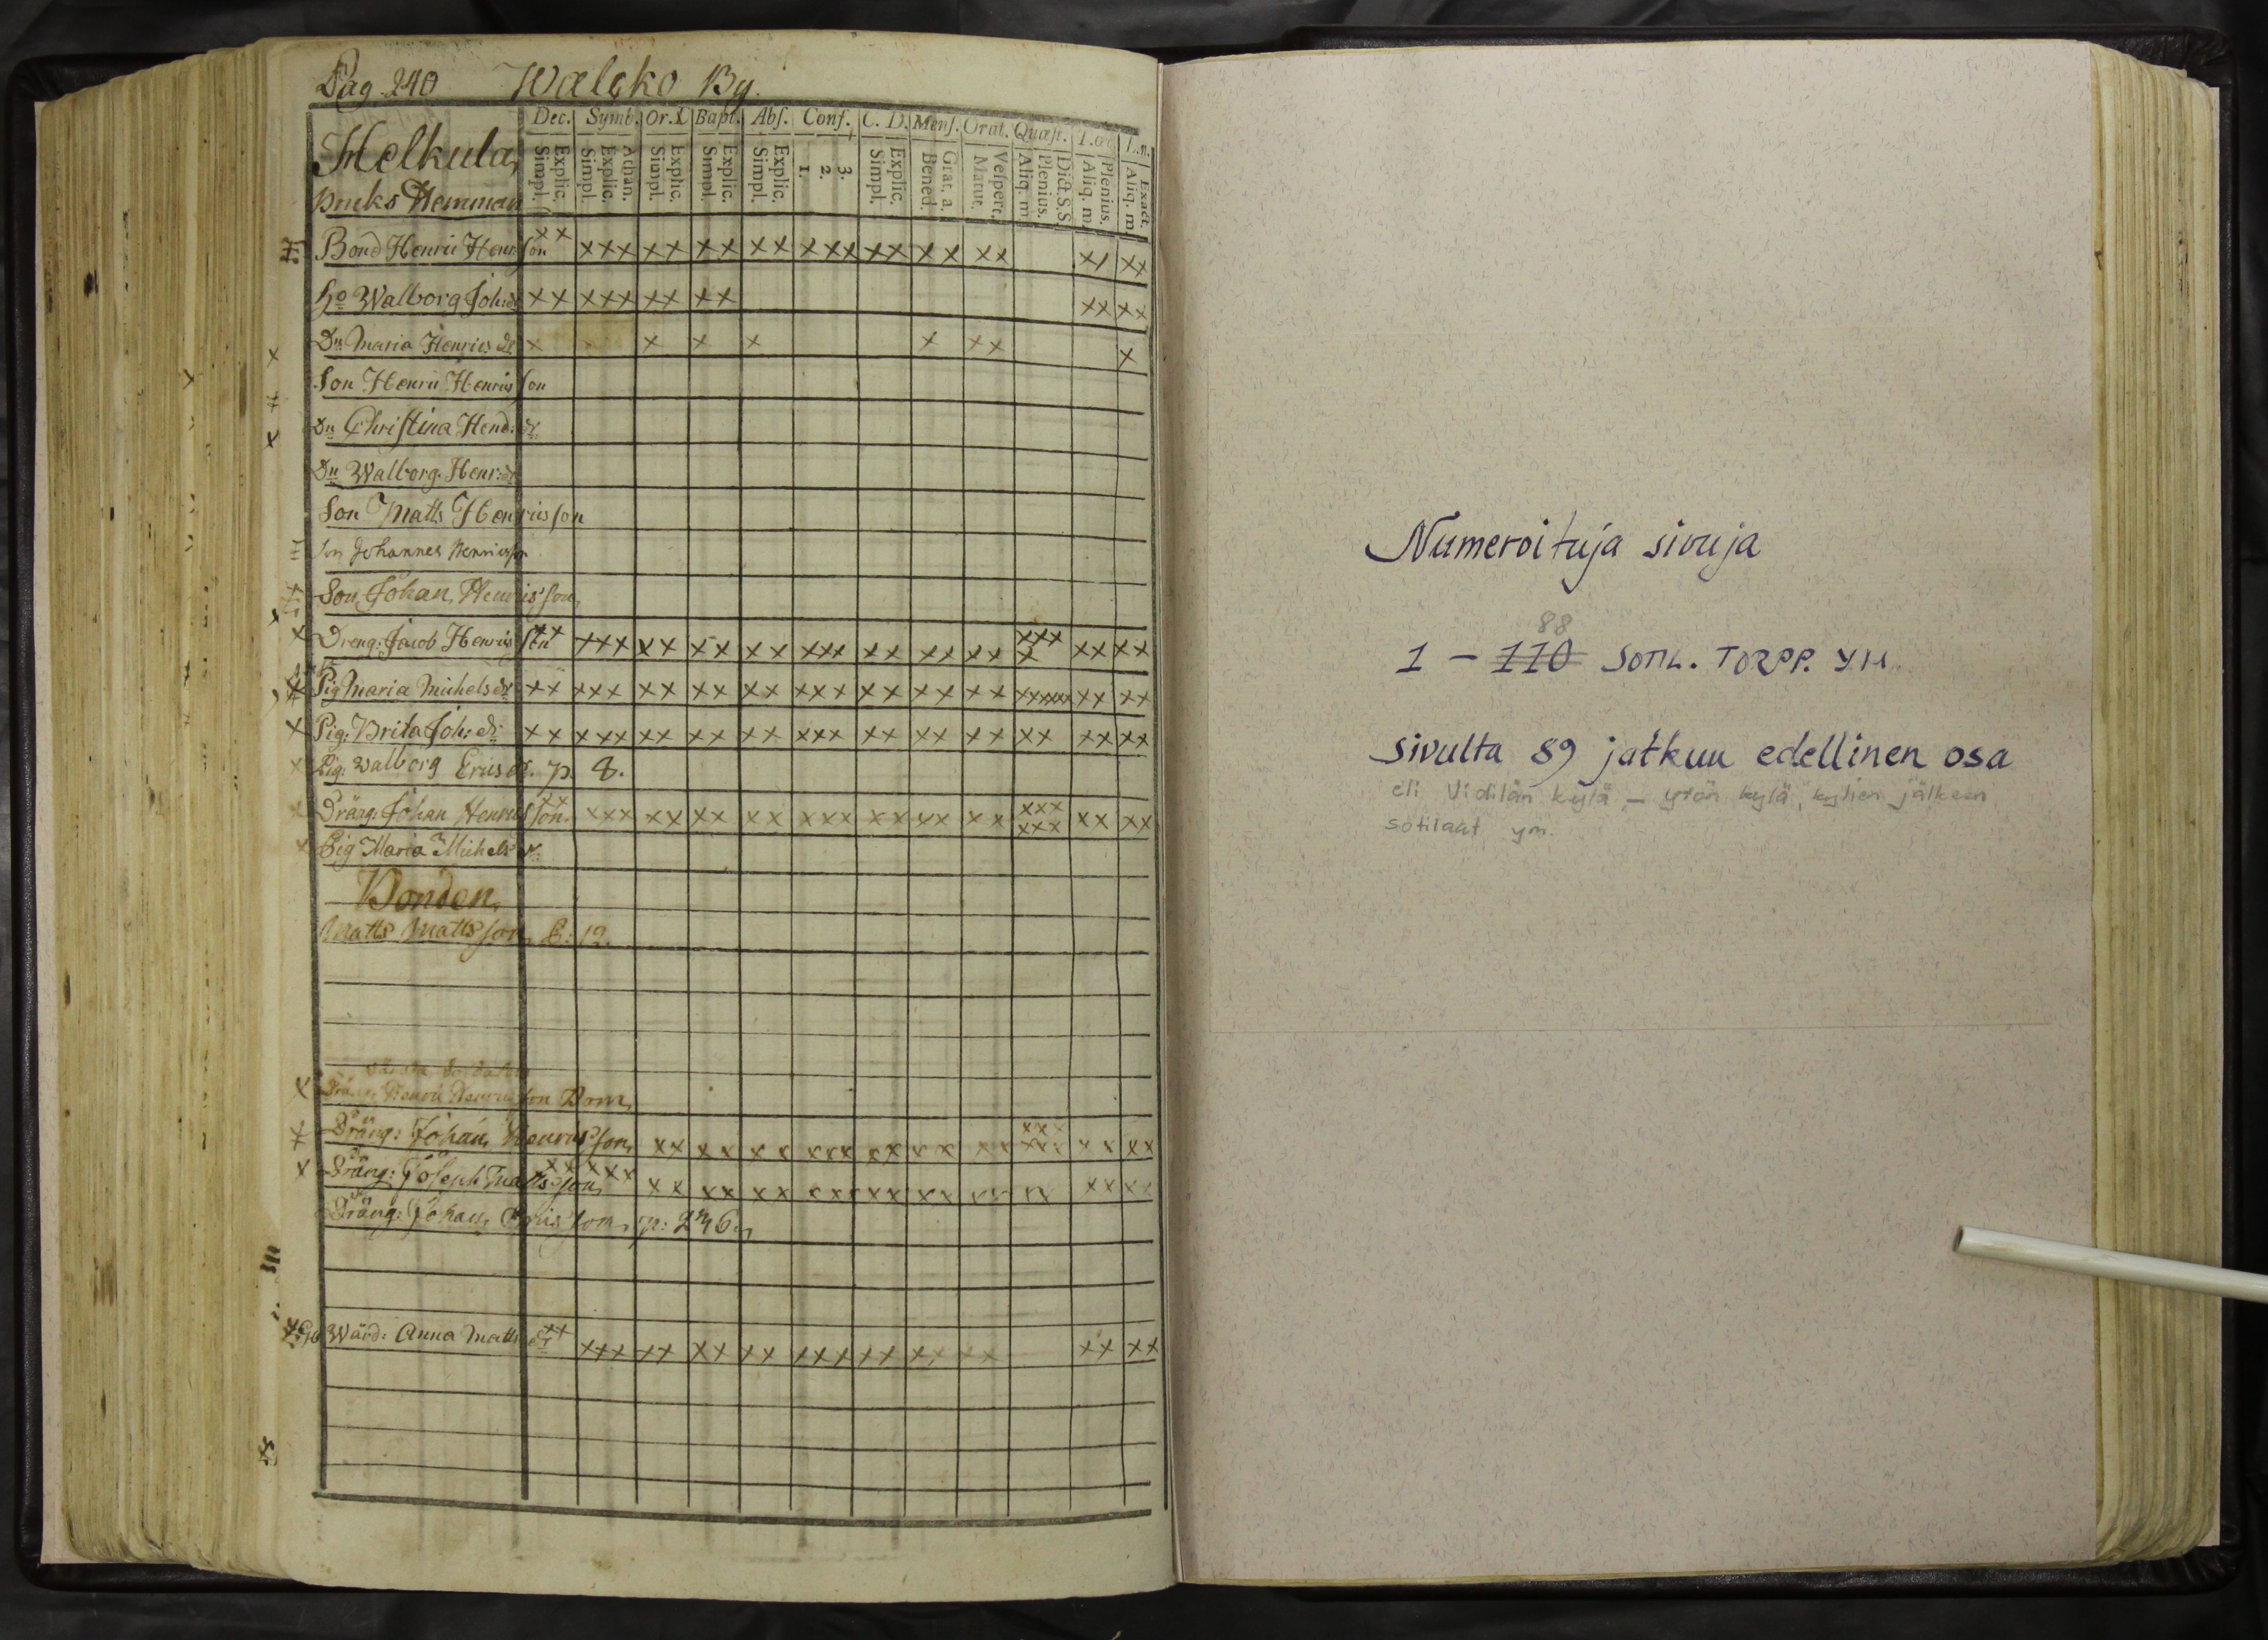 Pag. 240 Walcko By.
Dec. Symb. Or.D. Bapt. Abs. Conf. C. D. Mens. Orat. Quæst. T.œc. L.n.
Helkula,
Explic. Simpl. Athan. Explic. Simpl. Explic. Simpl. Explic. Simpl. Explic. Simpl. 3. 2. 1. Explic. Simpl. Grat. a. Bened. Vespert. Matut. Dict.S.S. Plenius. Aliq. m. Plenius. Aliq. m. Exact. Aliq. m.
Hemman
Bond Henric Henrisson xx xxx xx xx xx xxx xx xx xx xx xx
Ho Walborg Joh:dr xx xxx xx xx xx xx
Dr Maria Henrics dr x x x x x xx x
Son Henric Henricsson
Dr Christina Hend: dr
Dr Walborg Henr:dr
Son Matts Henricsson
Son Johannes Henricsson
Son Johan Henricsson
Dreng: Jacob Henricsson xx xxx xx xx xx xxx xx xx xx xxx x xx xx
Pig Maria Michelsdr xx xxx xx xx xx xxx xx xx xx xxxxxx xx xx
Pig: Brita Joh: dr xx xxx xx xx xx xxx xx xx xx xx xx xx
Pig: Walborg Ericsdr. p. 8.
Dräng: Johan Henricsson xx xxx xx xx xx xxx xx xx xx xxx xxx xx xx
Pig Maria Michels dr.
Bonden
Matts Mattsson 12.
Dräng Henric Henricsson
Dräng: Johan Henricsson xx xx xx xxx xx xx xx xxx xxx xx xx
Dräng: Joseph Mattsson xx xxx xx xx xx xxx xx xx xx xx xx xx
Dräng: Johan Ericsson p: 246
Wärd: Anna Matts dr xx xxx xx xx xx xxx xx xx xx xx xx
Numeroituja sivuja
88
1 – 110 SOTIL. TORPP. YM.
sivulta 89 jatkuu edellinen osa
eli Vidilän kylä – Yrön kylä, kylien jälkeen
sotilaat ym.